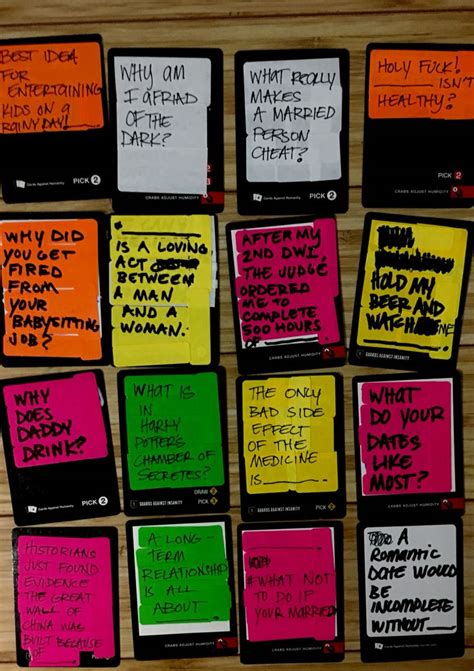 BEST IDEA
FOR
ENTERTAINING
KIDS ON A
RAINY DAY! ____
Cards Against Humanity
PICK 2
WHY AM
I AFRIAD
OF THE
DARK?
CRABS ADJUST HUMIDITY
WHAT REALLY
MAKES
A MARRIED
PERSON
CHEAT?
Cards Against Humanity
PICK 2
HOLY FUCK!
____ ISN'T
HEALTHY?
PICK 2
CRABS ADJUST HUMIDITY
WHY DID
YOU GET
FIRED
FROM
YOUR
BABYSITTING
JOB?
____
IS A LOVING
ACT
BETWEEN
A MAN
AND A
WOMAN.
AFTER MY
2ND DWI,
THE JUDGE
ORDERED
ME TO
COMPLETE
500 HOURS
OF ____
CRABS ADJUST HUMIDITY
HOLD MY
BEER AND
WATCH
GUARDS AGAINST INSANITY
WHY
DOES
DADDY
DRINK?
Cards Against Humanity
PICK 2
WHAT IS
IN
HARRY
POTTERS
CHAMBER OF
SECRETES?
DRAW 2
PICK 3
GUARDS AGAINST INSANITY
THE ONLY
BAD SIDE
EFFECT
OF THE
MEDICINE
IS ____
GUARDS AGAINST INSANITY
WHAT
DO YOUR
DATES
LIKE
MOST?
CRABS ADJUST HUMIDITY
HISTORIANS
JUST FOUND
EVIDENCE
THE GREAT
WALL OF
CHINA WAS
BUILT BECAUSE
OF ____
A LONG-
TERM
RELATIONSHIP
IS ALL
ABOUT ____
CRABS ADJUST HUMIDITY
# WHAT NOT
TO DO IF
YOUR MARRIED
A
ROMANTIC
DATE WOULD
BE
INCOMPLETE
WITHOUT ____
CRABS ADJUST HUMIDITY